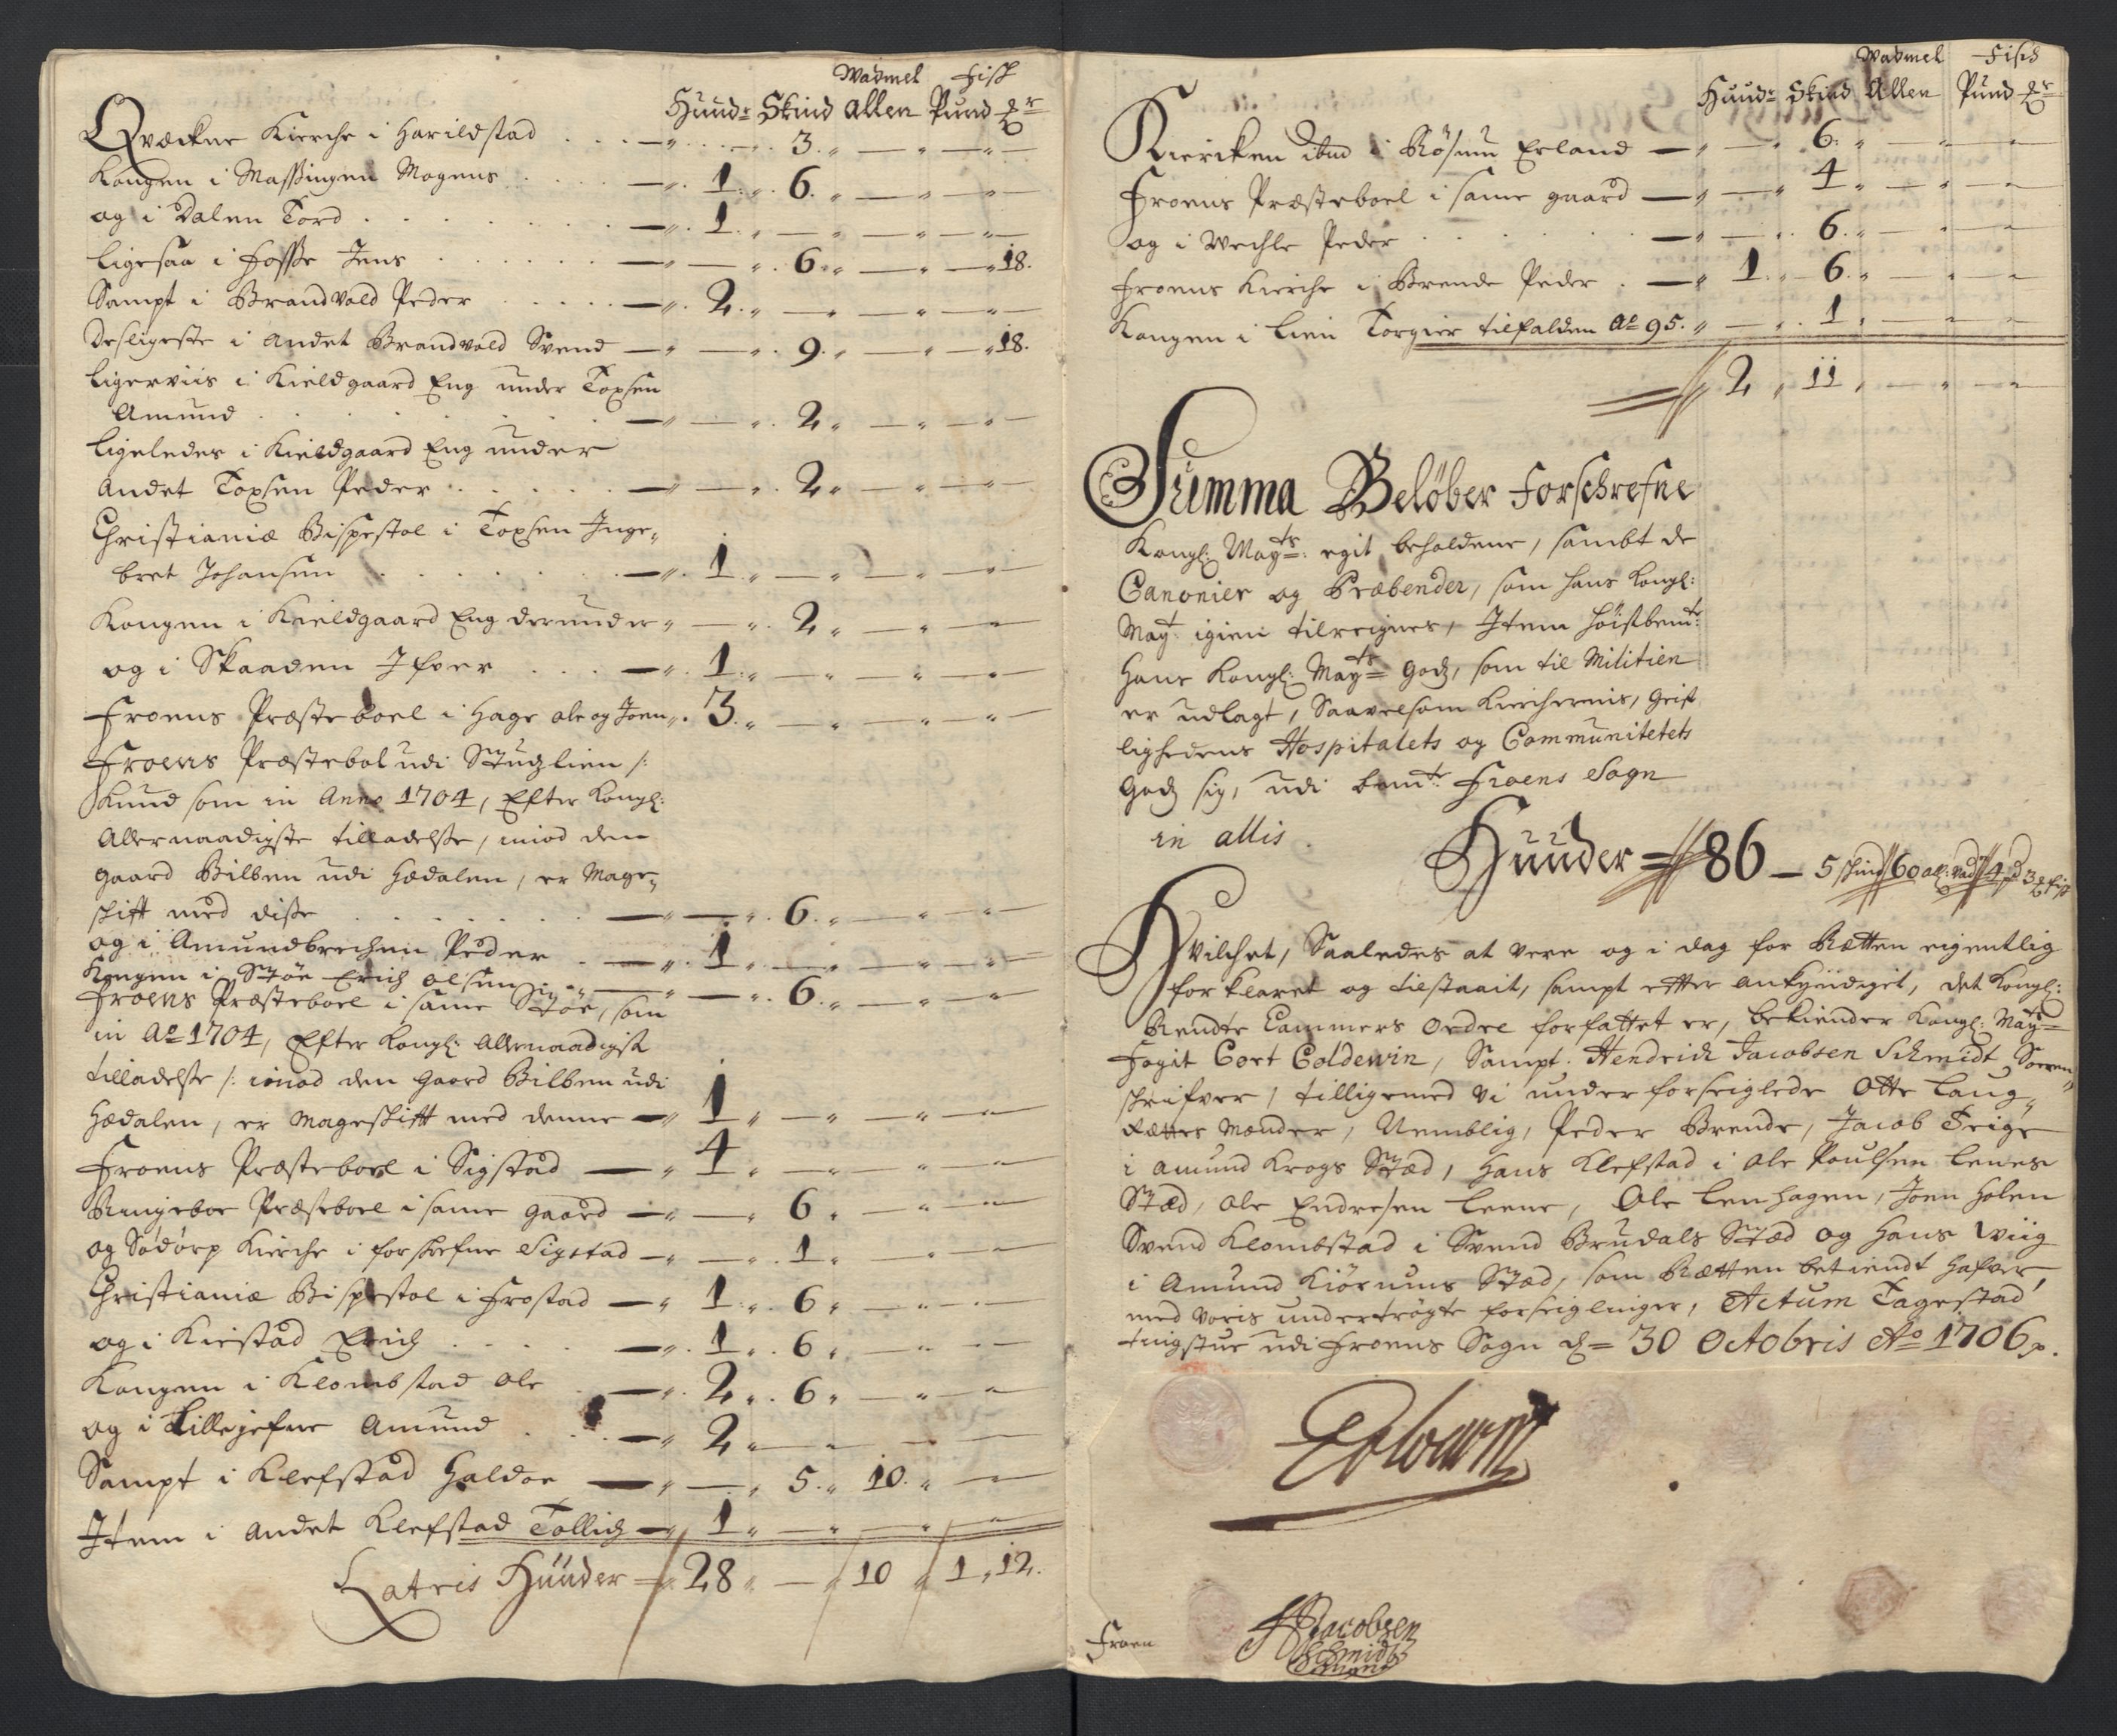 Wadmel Fisk
Huud: Skind Allen Pund
Qvækne Kierche i Harildstad 3.
Kongen i Massingen Mogens 1. 6.
og i Dalen Tord 1.
ligesaa i Fosse Jens 6. 18.
Sampt i Brandvold Peder 2.
Desligeste i Andet Brandvold Svend 9. 18.
ligerviis i Kieldgaard Eng under Toxsen
Amund 2
ligeledes i Kieldgaard Eng under
Andet Toxsen Peder 2
Christianiæ Bispestol i Toxsen Inge
bret Johansen 1
Kongen i Kieldgaard Eng derunder 2
og i Skaaden Ifver 1.
Froens Præsteboel i Hage ole og Joen 3.
Froens Præstebol udi Stuchlien /:
Knud som in Anno 1704, Efter Kongl:
Allernaadigste tilladelsse, imod den
gaard Bilben udi Hædalen, er Mage
skifft med disse 6.
og i Amundbrechen Peder 1
Kongen i Støe Erich olsen 6.
Froens Præsteboel i same Støe, som
in Ao 1704, Efter Kongl: Allernaadigst
tilladelsse /: imod den gaard Bilben udi
Hædalen, er Mageskifft med denne 1
Froens Præsteboel i Sigstad 4
Ringeboe Præsteboel i same gaard 6
og Sødørp Kierche i forskrefne Sigstad 1
Christianiæ Bispestol i Frostad 1 6
og i Kirstad Erich 1. 6
Kongen i Klombstad ole 2. 6
og i Lillegefne Amund 2
Sampt i Klefstad Haldoe 5. 10.
Item i Andet Klefstad Tollich 1
Lateris Huuder 28 10 1 12.
Wadmel Fisk
Huud: Skind Allen Pund
Kiercken ibid i Røssum Erland 6.
Froens Præsteboel i same gaard 4
og i Wechle Peder 6.
Froens Kierche i Brende Peder 1. 6.
Kongen i Lien Torgier tilfalden Ao 95. 1
2 11
Summa Beløber Forschrefne
Kongl: Mayts: egit beholdene, sambt de
Canonier og Præbender, som hans Kongl:
Mayt: igien tilreignes, Item høistbemt:
Hans Kongl: Mayts Godz, som til Militien
er udlagt, Saavelsom Kirchernis, Geist
lighedens Hospitalets og Communitetets
Godz sig, udi bemt: Froens Sogn
in allis
Huuder 86 - 5 skind 60 al: Vad 4 3 fisk
Hvilchet, Saaledes at vere og i dag for Rætten eigentlig
forklaret og tilstaait, sampt efter ankyndiget, det Kongl:
Rendte Cammers Ordre forfattet er, bekiender Kongl: Mayts
Fogit Cort Coldewin, Sampt. Hendrich Jacobsen Schmidt, Soren
skrifver, tilligemed Vi underforseiglede Otte Laug
Rættes Mænder, Nemblig, Peder Brende, Jacob Teige
i Amund Krogs Stæd, Hans Klefstad i ole Poulsen Lenes
Stæd, ole Endresen Leene, Ole Lenhagen, Joen Holen
Svend Klombstad i Svend Brudals Stæd og Hans Wiig
i Amund Kiørnums Stæd, som Rætten betiendt hafver,
med voris undertrøgte forseiglinger, Actum Tagestad
tingstue udi Froens Sogn d= 30 Octobris Ao 1706.
Coldewin
Froen
HJacobsen
Schmidt